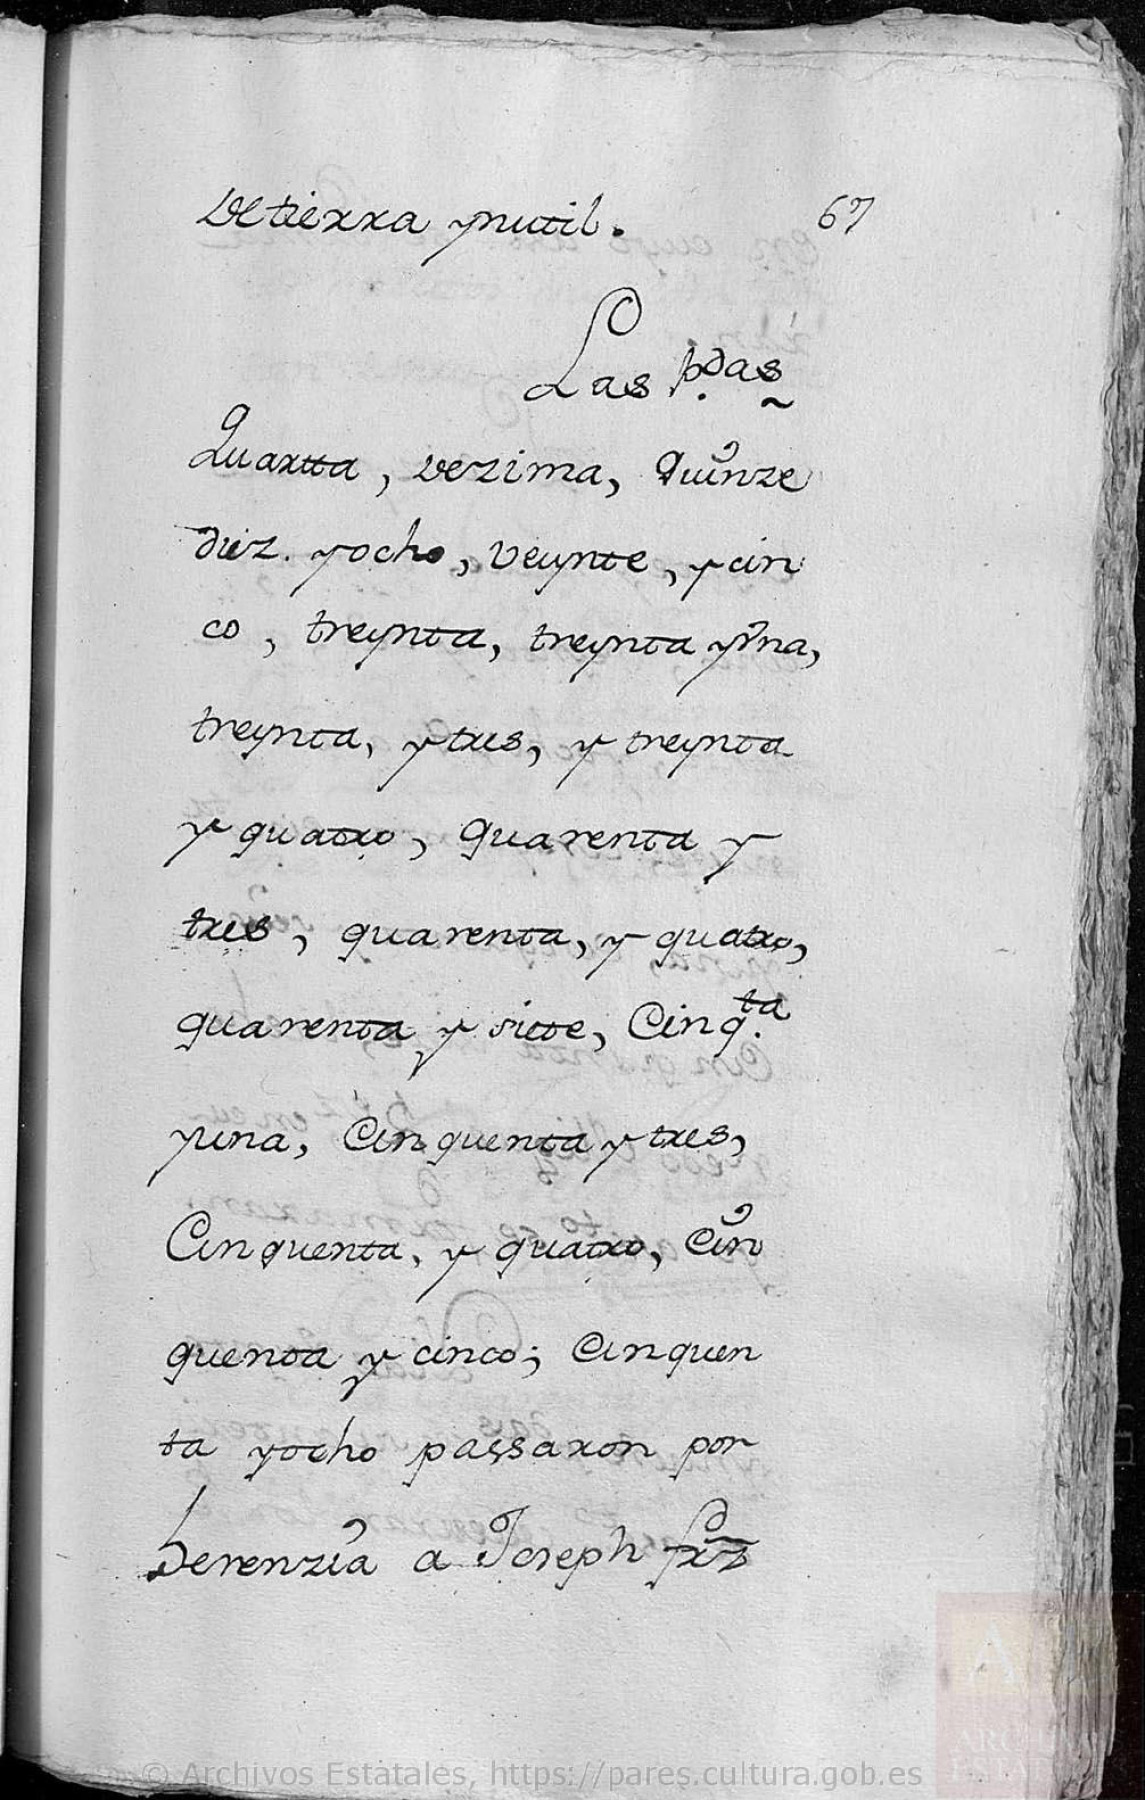 detierra ynutil. 67
Las p.das
Quartta, dezima, Quinze
diez. yocho, veynte, y cin
co, treynta, treynta yvna,
treynta, y tres, y treynta
y quatro, quarenta y
tres, quarenta, y quatro,
quarenta y siete, Cinq.ta
yuna, Cinquenta y tres,
Cinquenta, y quatro, Cin
quenta y cinco; Cinquen
ta yocho passaron por
herenzia a Joseph frz
© Archivos Estatales, https://pares.cultura.gob.es